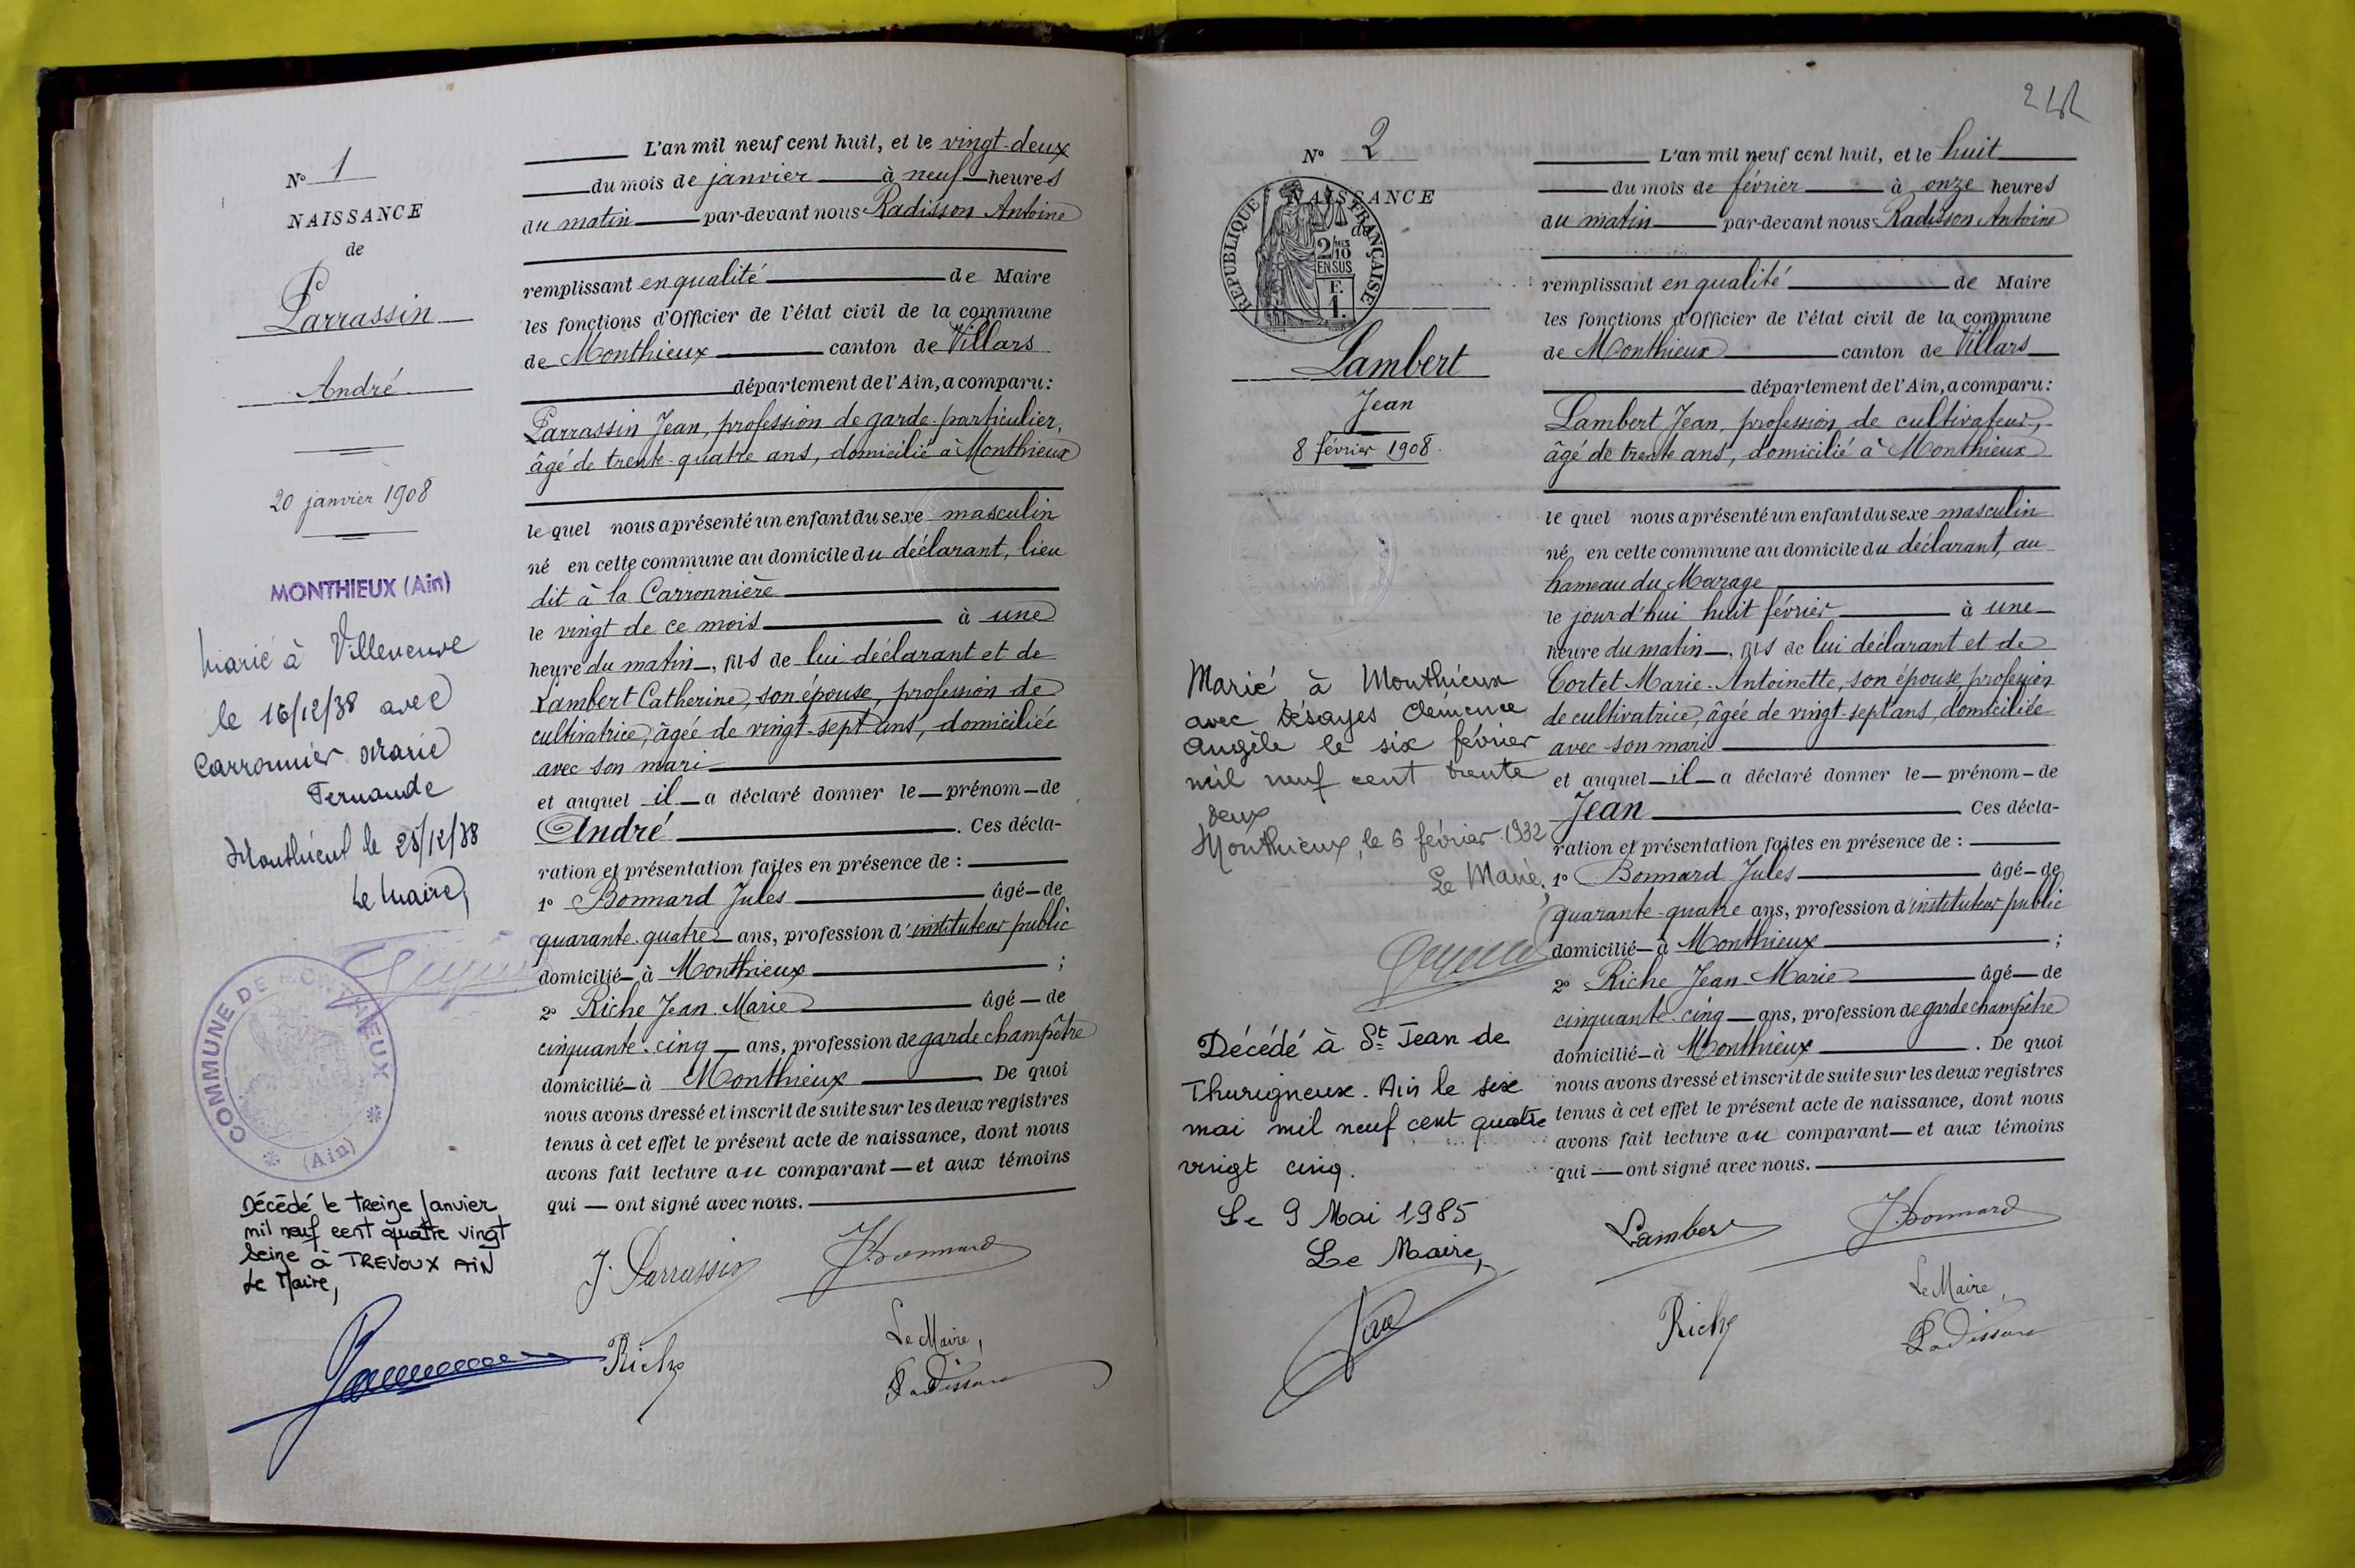 N° 1
NAISSANCE
de
Parrassin
André
20 janvier 1908
MONTHIEUX (Ain)
Marié à Villeneuve
le 16/12/38 avec
Carronnier Marie
Fernande
Monthieux le 25/12/38
Le Maire,
COMMUNE DE MONTHIEUX
(Ain)
Décédé le treize Janvier
mil neuf cent quatre vingt
seize à TREVOUX AIN
Le Maire,
L'an mil neuf cent huit, et le vingt-deux
du mois de janvier à neuf heures
du matin par-devant nous Radisson Antoine
remplissant en qualité de Maire
les fonctions d'Officier de l'état civil de la commune
de Monthieux canton de Villars
département de l'Ain, a comparu:
Parrassin Jean, profession de garde-particulier,
âgé de trente-quatre ans, domicilié à Monthieux
le quel nous a présenté un enfant du sexe masculin
né en cette commune au domicile du déclarant, lieu
dit à la Carronnière
le vingt de ce mois à une
heure du matin, fils de lui déclarant et de
Lambert Catherine, son épouse, profession de
cultivatrice, âgée de vingt-sept ans, domiciliée
avec son mari
et auquel il a déclaré donner le prénom de
André. Ces décla-
ration et présentation faites en présence de :
1° Bonnard Jules âgé de
quarante-quatre ans, profession d'instituteur public
domicilié à Monthieux ;
2° Riche Jean-Marie âgé de
cinquante-cinq ans, profession de garde champêtre
domicilié à Monthieux. De quoi
nous avons dressé et inscrit de suite sur les deux registres
tenus à cet effet le présent acte de naissance, dont nous
avons fait lecture au comparant et aux témoins
qui ont signé avec nous.
J. Parrassin J. Bonnard
Riche
Le Maire,
Radisson
N° 2
NAISSANCE
de
REPUBLIQUE FRANÇAISE
2/10 MES
EN SUS
F.
1.
Lambert
Jean
8 février 1908.
Marié à Monthieux
avec Désayes Clémence
Angèle le six février
mil neuf cent trente
deux
Monthieux, le 6 février 1932
Le Maire,
Décédé à St Jean de
Thurigneux. Ain le six
mai mil neuf cent quatre
vingt cinq.
Le 9 Mai 1985
Le Maire,
L'an mil neuf cent huit, et le huit
du mois de février à onze heures
du matin par-devant nous Radisson Antoine
remplissant en qualité de Maire
les fonctions d'Officier de l'état civil de la commune
de Monthieux canton de Villars
département de l'Ain, a comparu:
Lambert Jean, profession de cultivateur,
âgé de trente ans, domicilié à Monthieux
le quel nous a présenté un enfant du sexe masculin
né en cette commune au domicile du déclarant, au
hameau du Marage
le jour d'hui huit février à une
heure du matin, fils de lui déclarant et de
Cortet Marie-Antoinette, son épouse, profession
de cultivatrice, âgée de vingt-sept ans, domiciliée
avec son mari
et auquel il a déclaré donner le prénom de
Jean Ces décla-
ration et présentation faites en présence de :
1° Bonnard Jules âgé de
quarante-quatre ans, profession d'instituteur public
domicilié à Monthieux ;
2° Riche Jean-Marie âgé de
cinquante-cinq ans, profession de garde champêtre
domicilié à Monthieux. De quoi
nous avons dressé et inscrit de suite sur les deux registres
tenus à cet effet le présent acte de naissance, dont nous
avons fait lecture au comparant et aux témoins
qui ont signé avec nous.
Lambert J. Bonnard
Riche
Le Maire,
Radisson